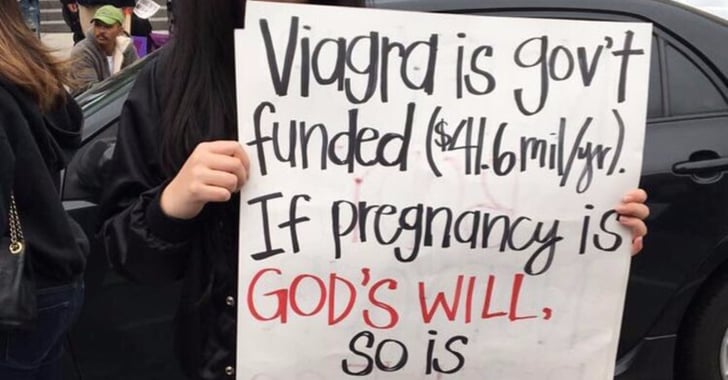 Viagra is gov't
funded ($41.6mil/yr).
If pregnancy is
GOD'S WILL,
so is